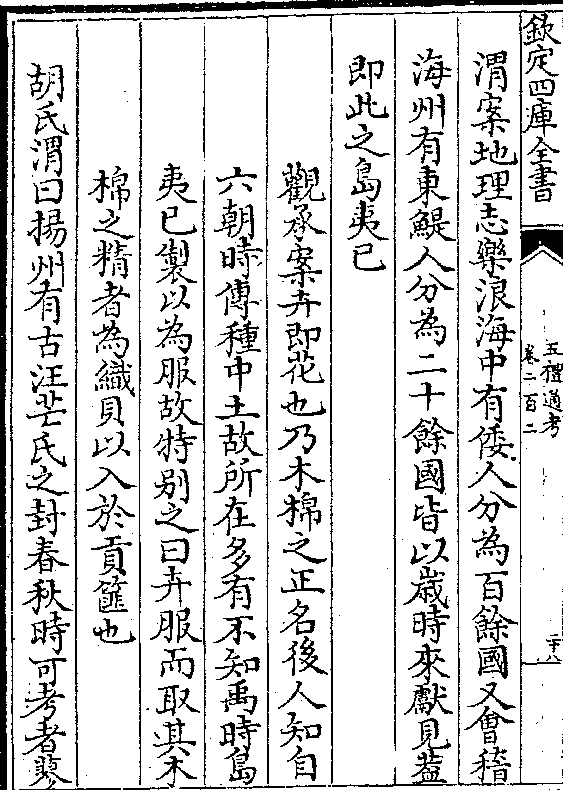 欽定四庫全書
五禮通考
卷二百二
二十八
渭案地理志樂浪海中有倭人分為百餘國又會稽
海州有東鯷人分為二十餘國皆以歲時來獻見葢
即此之島夷已
觀承案卉即花也乃木棉之正名後人知自
六朝時傳種中土故所在多有不知禹時島
夷已製以為服故特别之曰卉服而取其木
棉之精者為織貝以入於貢篚也
胡氏渭曰揚州有古汪芒氏之封春秋時可考者寥